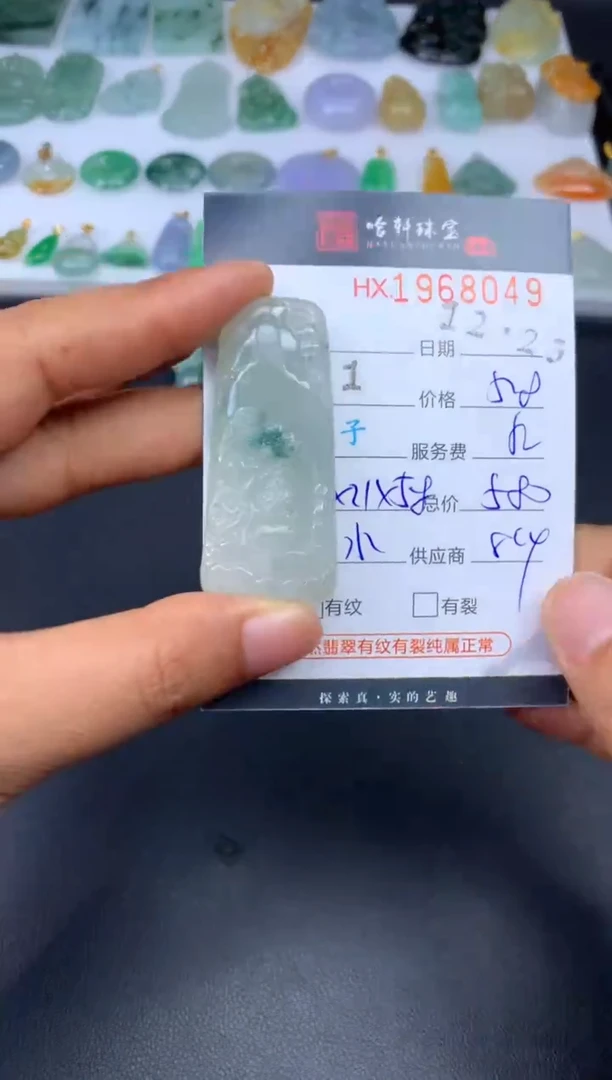 哈轩珠宝
HX.1968049
日期 12.23
1 价格 528
子 服务费 52
x21x58 总价 580
水 供应商
有纹 有裂
翡翠有纹有裂纯属正常
探索真·实的艺趣